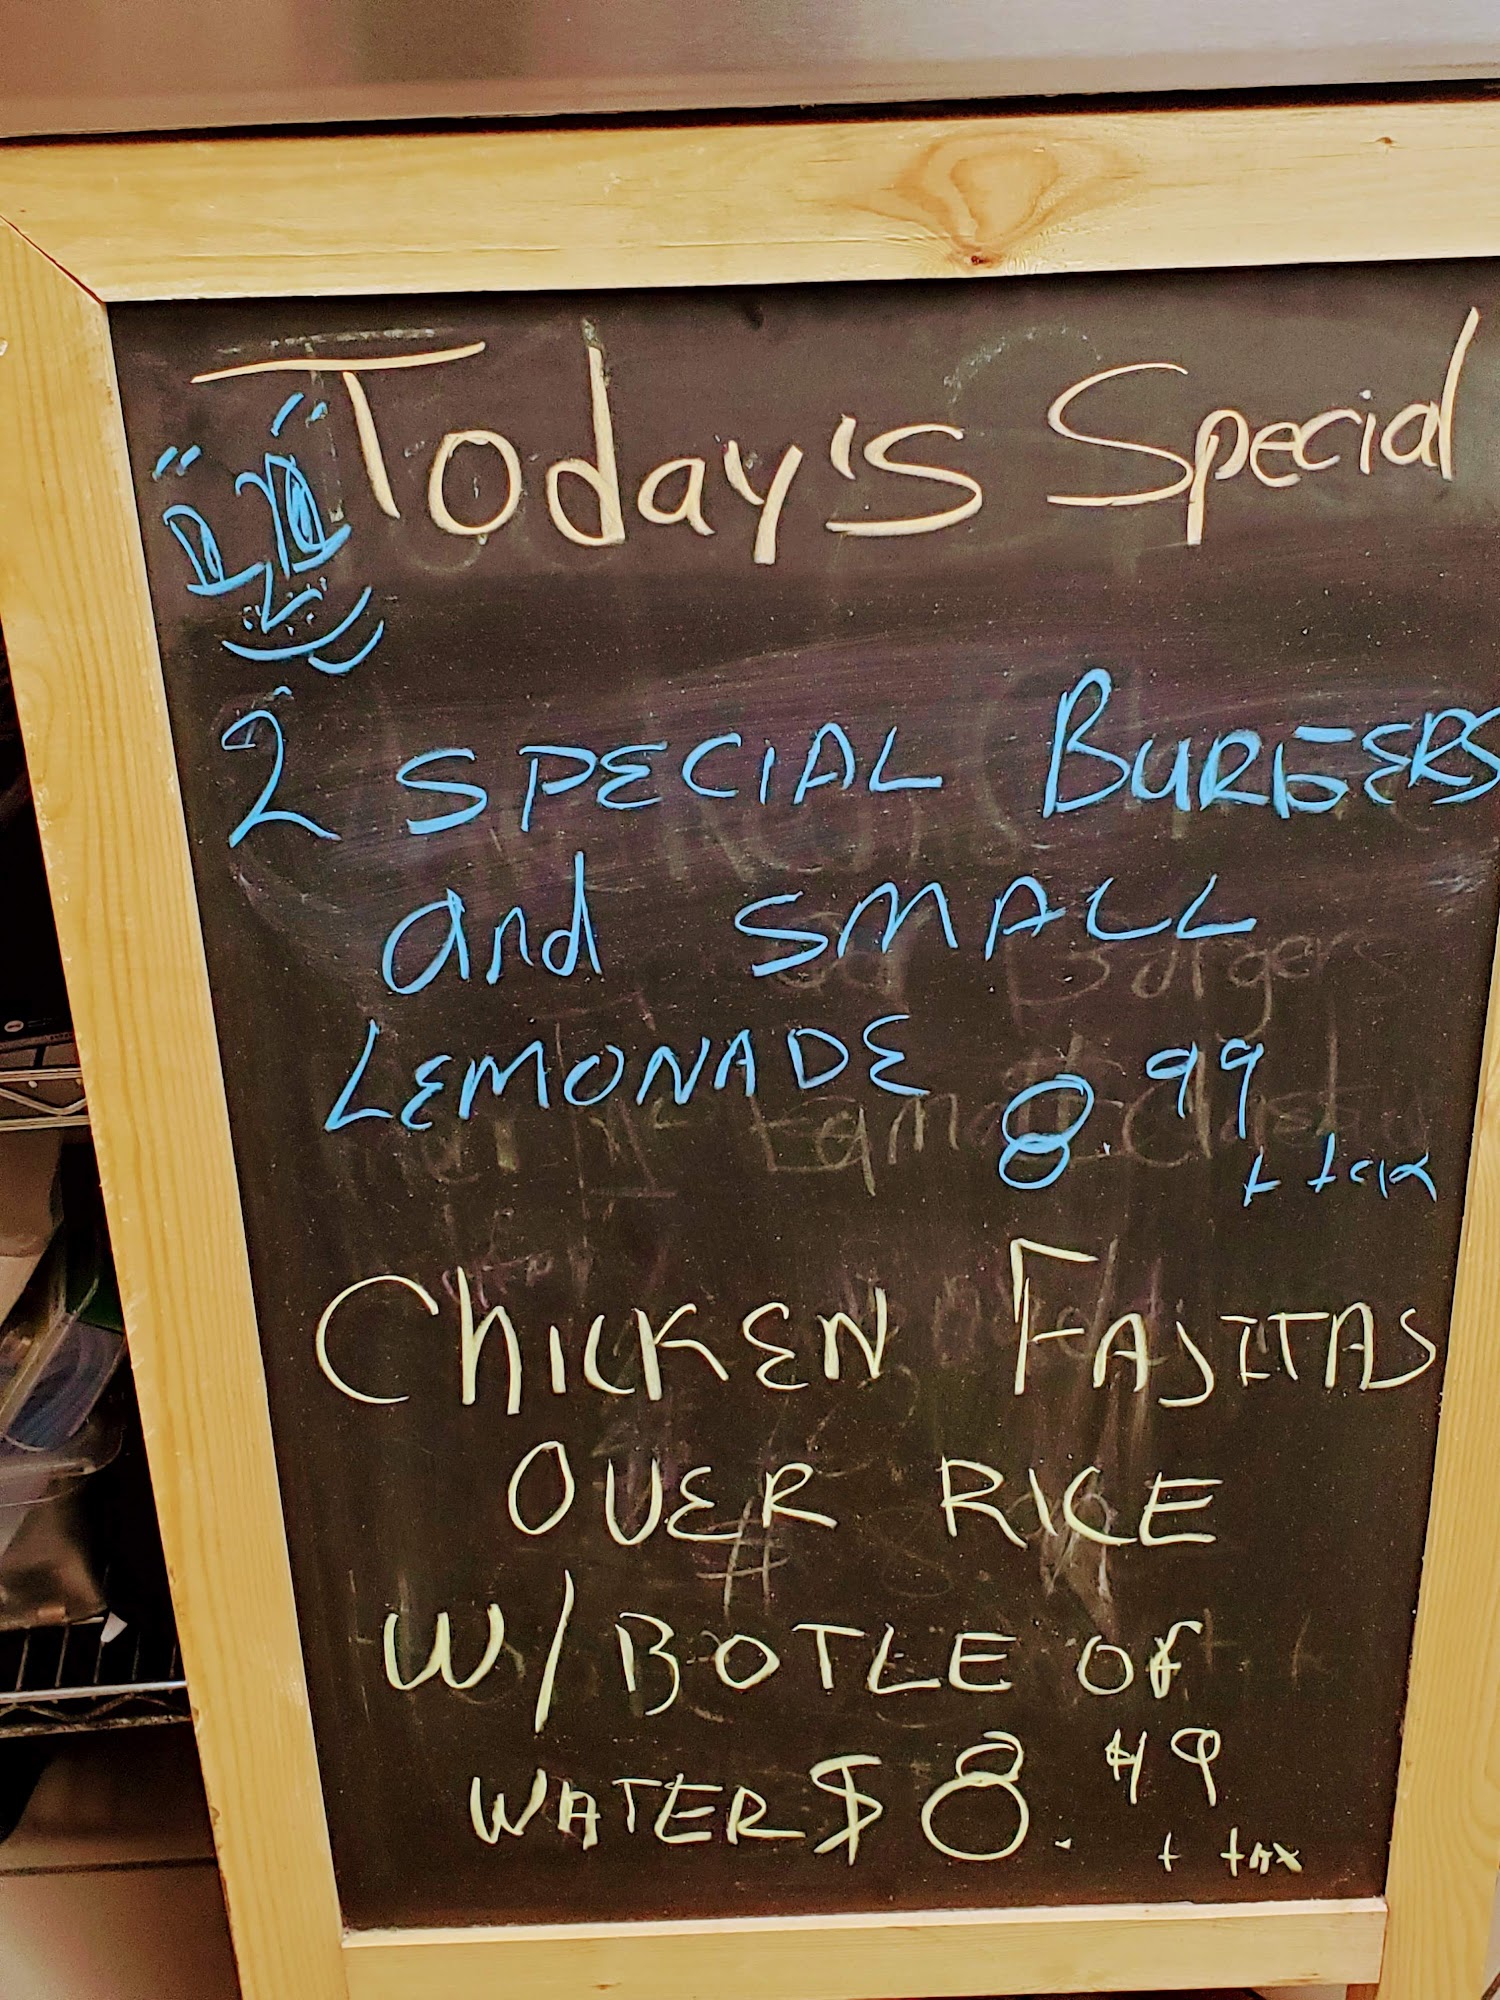 Today's Special
2 SPECIAL BURGERS
and SMALL
LEMONADE 8.99
+ tax
CHICKEN FAJITAS
OVER RICE
W/ BOTLE OF
WATER $8.49
+ tax